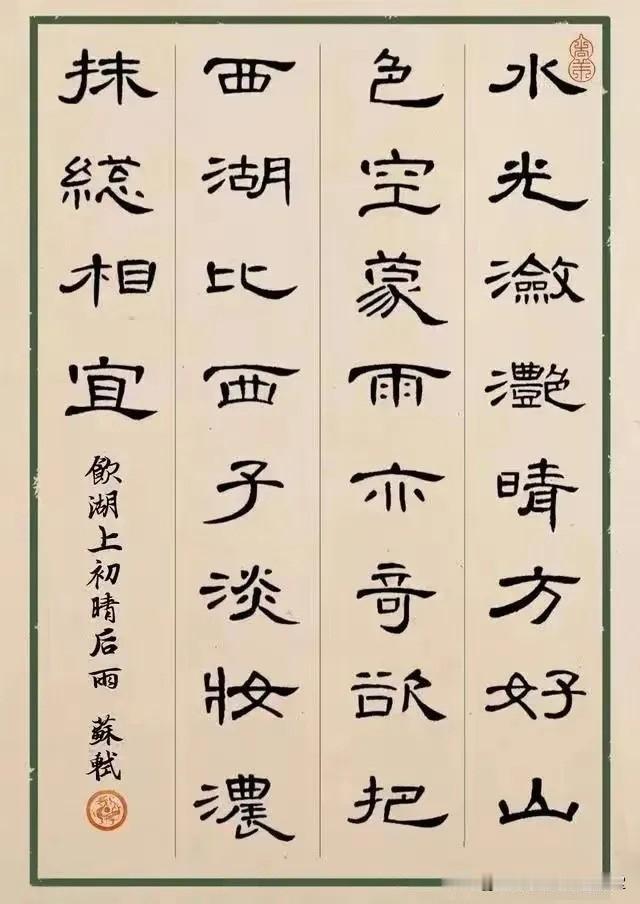 水光瀲灔晴方好山
色空蒙雨亦奇欲把
西湖比西子淡妝濃
抹緫相宜
飲湖上初晴后雨 蘇軾